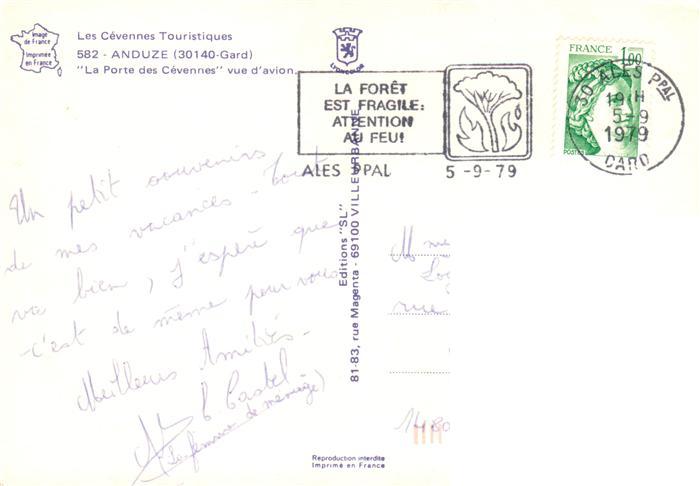 Image
de France
Imprimée
en France
Les Cévennes Touristiques
582 - ANDUZE (30140-Gard)
"La Porte des Cévennes" vue d'avion.
LYONCOLOR
LA FORÊT
EST FRAGILE:
ATTENTION
AU FEU!
ALES PPAL 5-9-79
FRANCE 1,00
POSTES
30 ALES PPAL
19H
5-9
1979
GARD
Un petit souvenirs
de mes vacances - Tout
va bien, j'espère que
c'est de même pour vous
Meilleurs Amitiés -
Castel
(La femme de ménage)
Editions "SL"
81-83, rue Magenta - 69100 VILLEURBANNE
Mme
rue
1480
Reproduction interdite
Imprimé en France